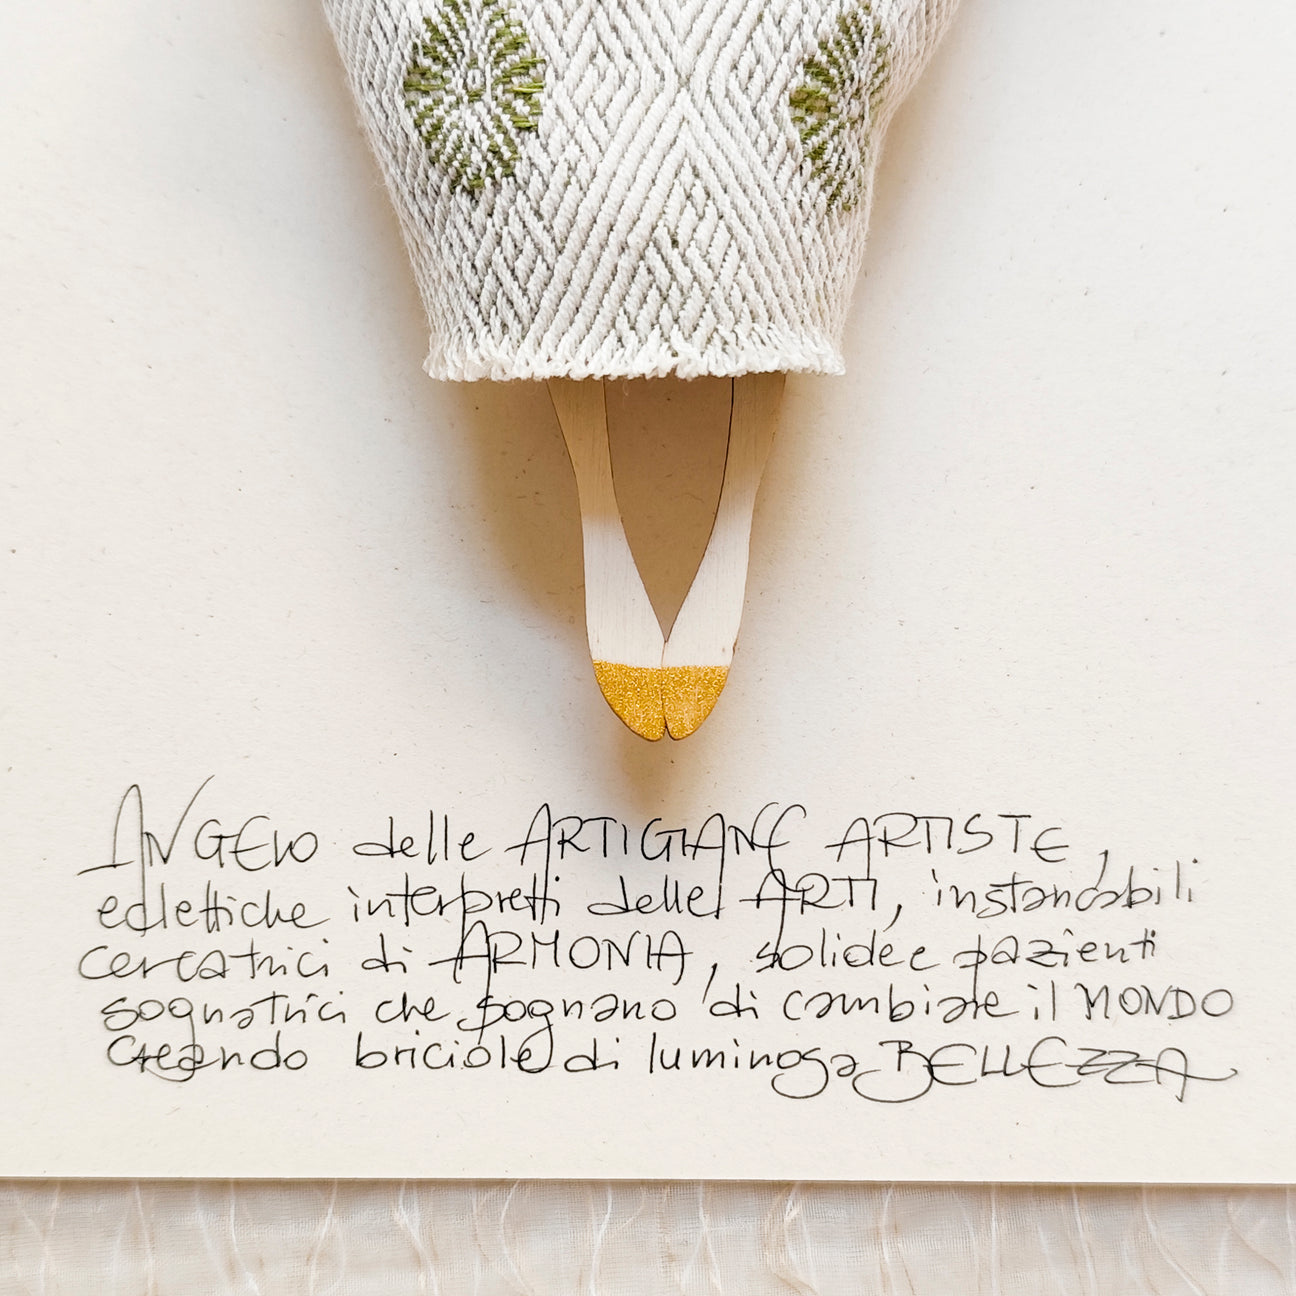 ANGELO delle ARTIGIANE ARTISTE,
eclettiche interpreti delle ARTI, instancabili
cercatrici di ARMONIA, solide e pazienti
sognatrici che sognano di cambiare il MONDO
creando briciole di luminosa BELLEZZA